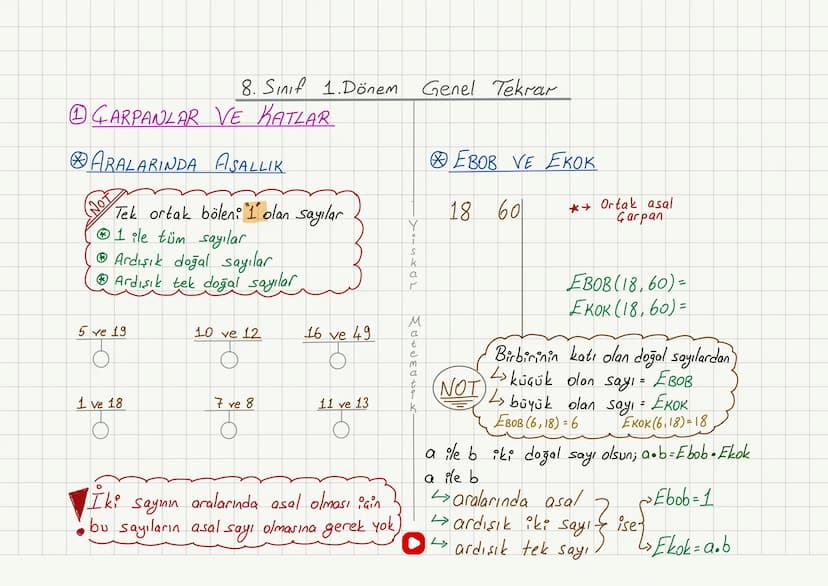 8. Sınıf 1.Dönem Genel Tekrar
① ÇARPANLAR VE KATLAR
⊛ ARALARINDA ASALLIK
NOT
Tek ortak bölen: "1" olan sayılar
⊛ 1 ile tüm sayılar
⊛ Ardışık doğal sayılar
⊛ Ardışık tek doğal sayılar
5 ve 19
10 ve 12
16 ve 49
1 ve 18
7 ve 8
11 ve 13
! İki sayının aralarında asal olması için
bu sayıların asal sayı olmasına gerek yok
Yiskar Matematik
⊛ EBOB VE EKOK
18 60
★→ Ortak asal
Çarpan
EBOB(18,60)=
EKOK(18,60)=
NOT
Birbirinin katı olan doğal sayılardan
↳ küçük olan sayı = EBOB
↳ büyük olan sayı = EKOK
EBOB(6,18)=6 EKOK(6,18)=18
a ile b iki doğal sayı olsun; a•b=Ebob•Ekok
a ile b
↳ aralarında asal
↳ ardışık iki sayı
↳ ardışık tek sayı
ise
Ebob=1
Ekok=a.b